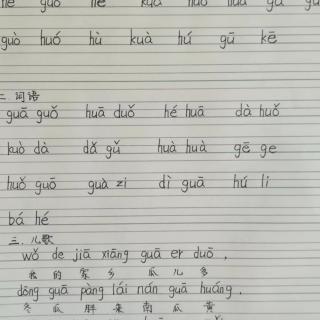 guò huó hù kuà hú gū kē
二.词语
guā guǒ huā duǒ hé huā dà huǒ
kuò dà dǎ gǔ huà huà gē ge
huǒ guō guà zi dì guā hú li
bá hé
三.儿歌
wǒ de jiā xiāng guā er duō,
我 的 家 乡 瓜 儿 多
dōng guā pàng lái nán guā huáng,
冬 瓜 胖 来 南 瓜 黄